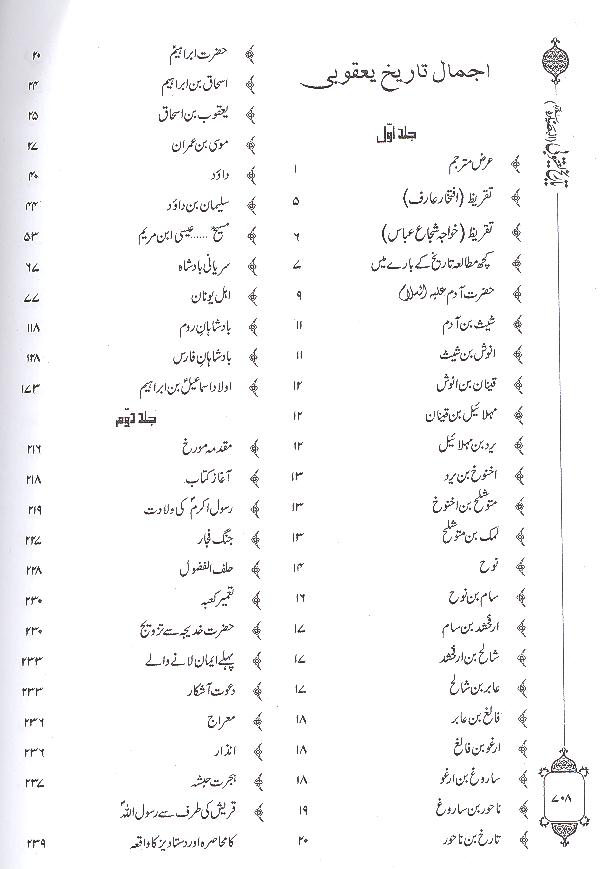 اجمال تاریخ یعقوبی
جلد اوّل
عرض مترجم ۱
تقریظ (افتخار عارف) ۵
تقریظ (خواجہ شجاع عباس) ۶
کچھ مطالعہ تاریخ کے بارے میں ۷
حضرت آدم علیہ السلام ۹
شیث بن آدم ۱۱
انوش بن شیث ۱۱
قینان بن انوش ۱۲
مہلائیل بن قینان ۱۲
یرد بن مہلائیل ۱۲
اخنوخ بن یرد ۱۳
متوشلح بن اخنوخ ۱۳
لمک بن متوشلح ۱۳
نوح ۱۴
سام بن نوح ۱۶
ارفخشد بن سام ۱۷
شالح بن ارفخشد ۱۷
عابر بن شالح ۱۷
فالغ بن عابر ۱۸
ارغو بن فالغ ۱۸
ساروغ بن ارغو ۱۸
ناحور بن ساروغ ۱۹
تارخ بن ناحور ۲۰
حضرت ابراہیم ۲۰
اسحاق بن ابراہیم ۲۴
یعقوب بن اسحاق ۲۵
موسی بن عمران ۲۷
داؤد ۴۰
سلیمان بن داؤد ۴۴
مسیح ...... عیسی ابن مریم ۵۳
سریانی بادشاہ ۶۷
اہل یونان ۷۷
بادشاہان روم ۱۱۸
بادشاہان فارس ۱۲۸
اولاد اسماعیل بن ابراہیم ۱۷۳
جلد دوّم
مقدمہ مورخ ۲۱۶
آغاز کتاب ۲۱۸
رسول اکرمؐ کی ولادت ۲۱۹
جنگ فجار ۲۲۷
حلف الفضول ۲۲۸
تعمیر کعبہ ۲۳۰
حضرت خدیجہ سے تزویج ۲۳۰
پہلے ایمان لانے والے ۲۳۳
دعوت آشکار ۲۳۳
معراج ۲۳۶
انذار ۲۳۶
ہجرت حبشہ ۲۳۷
قریش کی طرف سے رسول اللہؐ
کا محاصرہ اور دستاویز کا واقعہ ۲۳۹
۷۰۸